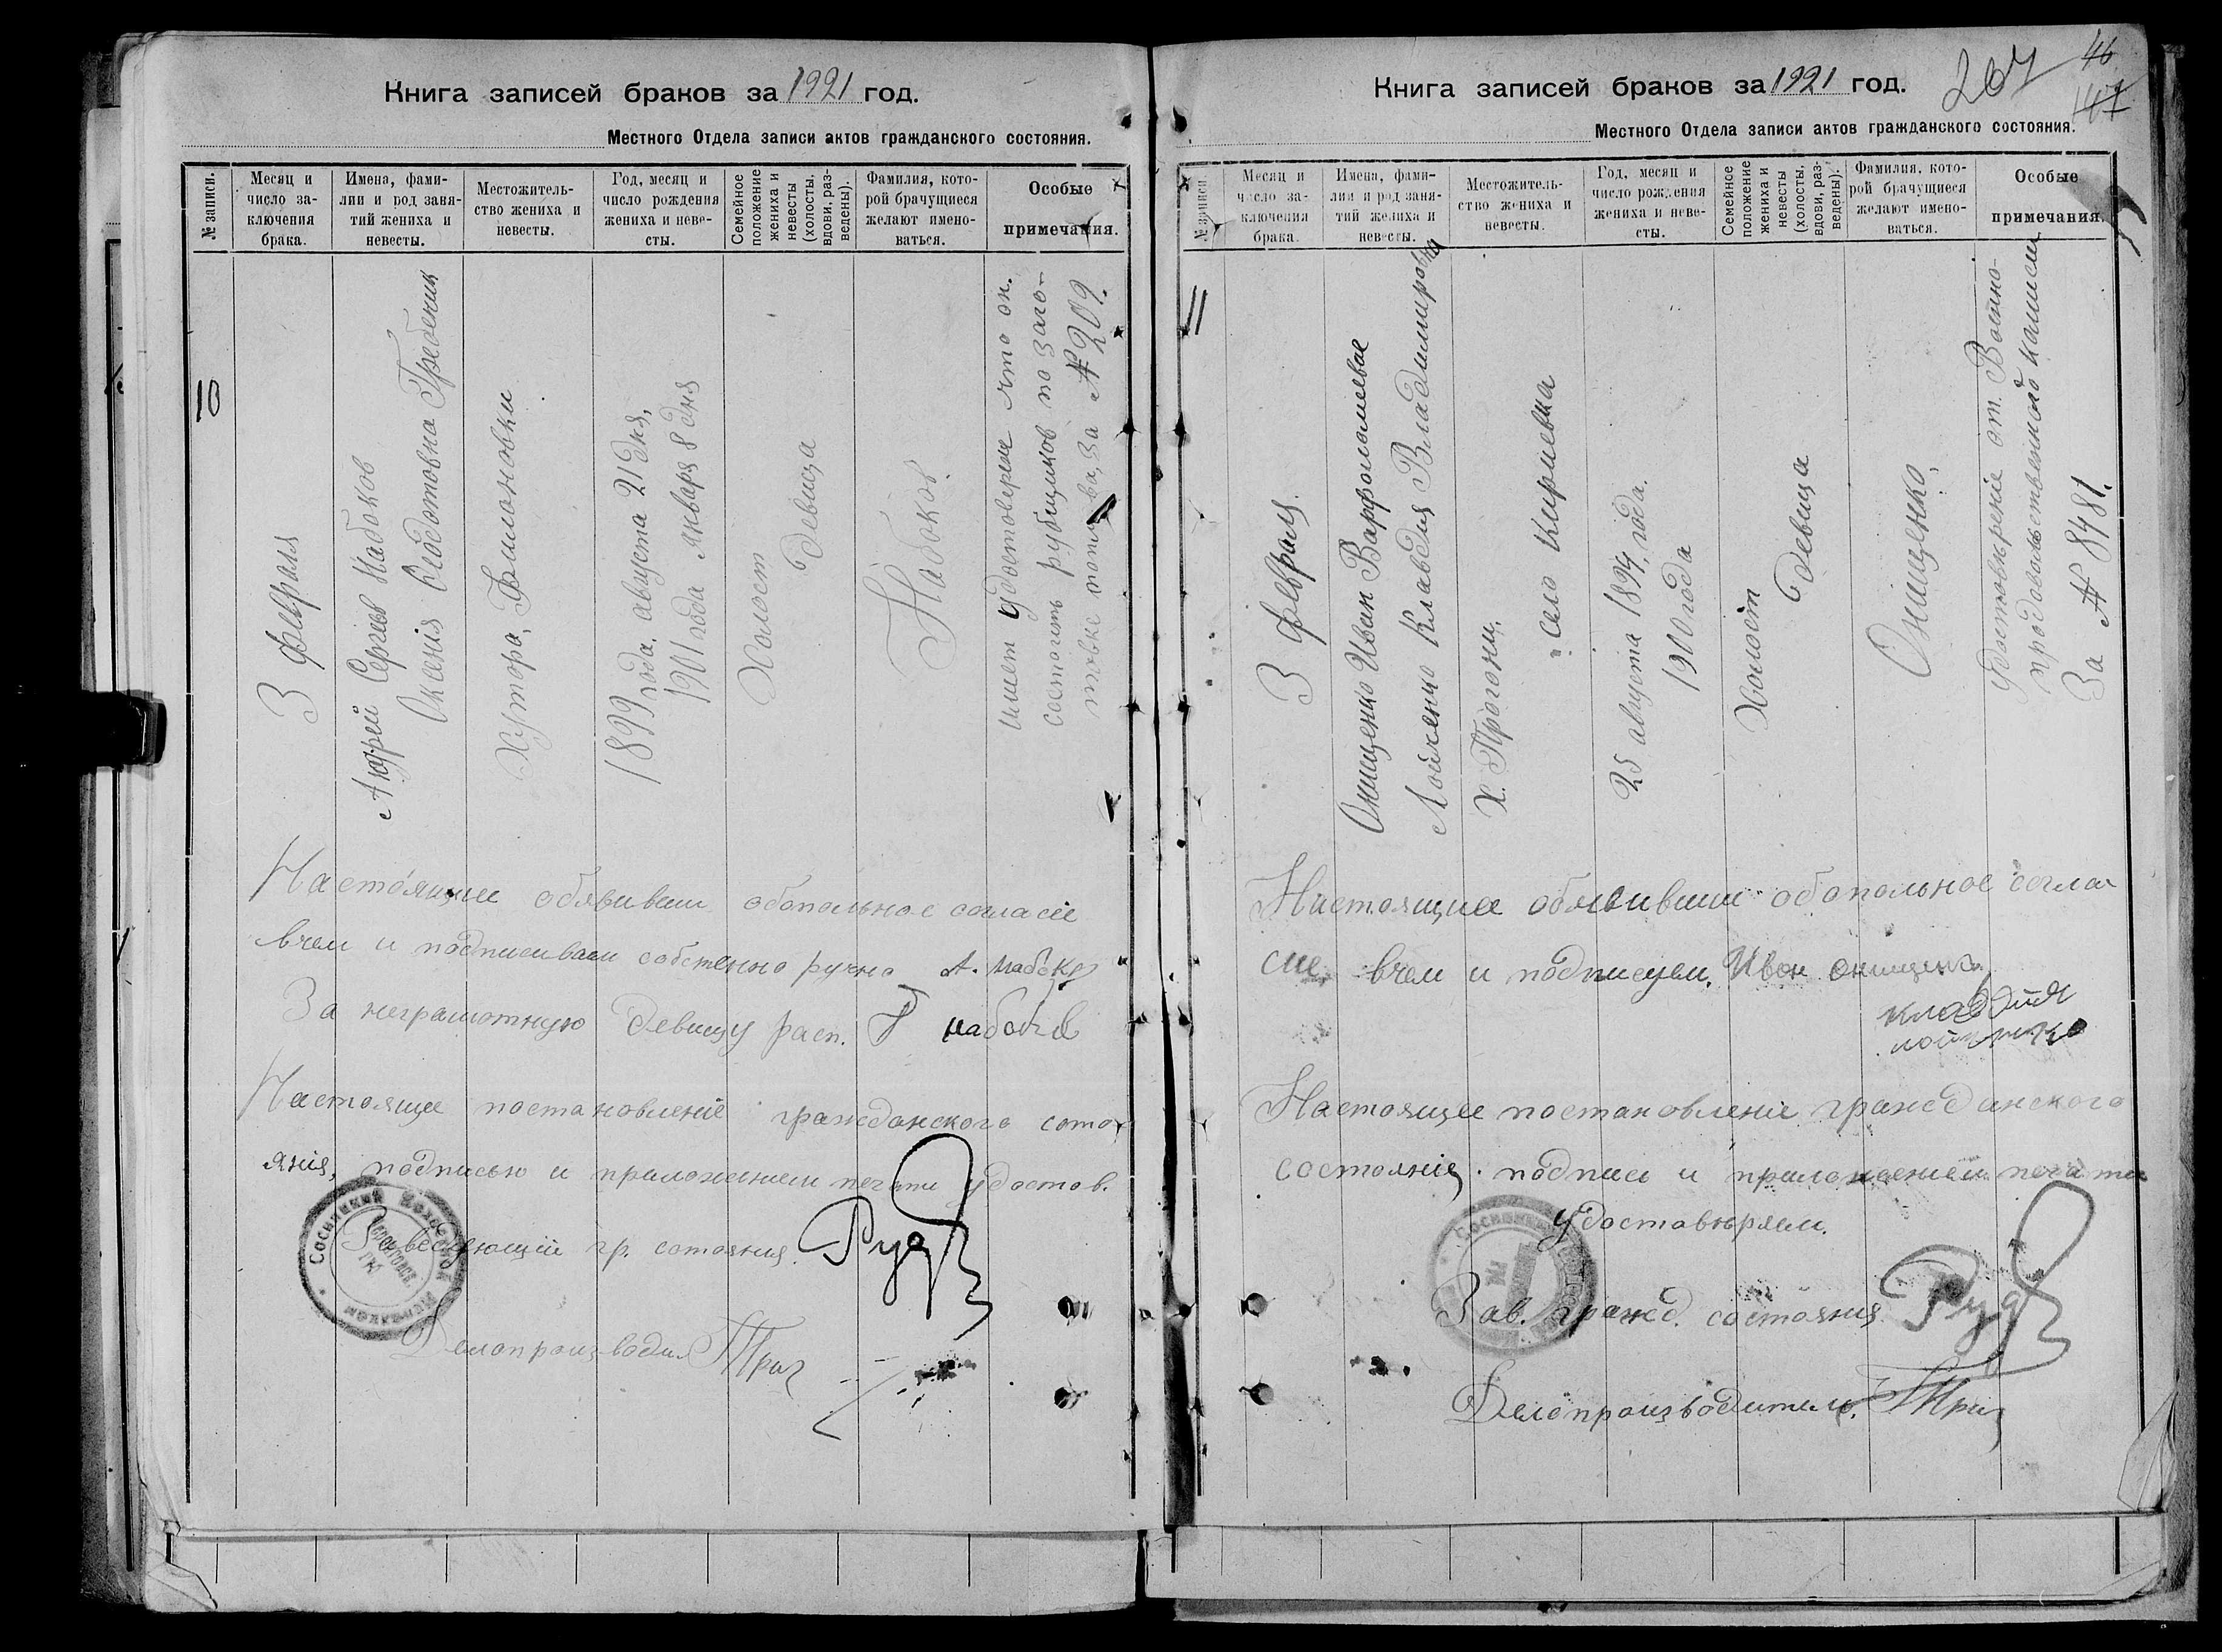 Книга записей браков за 1921 год.
Местного Отдела записи актов гражданского состояния.
№ записи.
Месяц и число заключения брака.
Имена, фамилии и род занятий жениха и невесты.
Местожительство жениха и невесты.
Год, месяц и число рождения жениха и невесты.
Семейное положение жениха и невесты (холосты, вдовы, разведены).
Фамилия, которой брачущиеся желают именоваться.
Особые примечания.
10
3 февраля
Андрей Сергев Набоков
Аксенія Феодотовна Гребеник
Хутора,
1899 года. августа 21 дня,
1901 года января 8 дня
Холост
Девица
Набоков.
Имеет удостоверене что он.
состоить рубщиков по заго-
товке за № 209.
Настоящии обявивши обопольное согласіе
вчем и подписиваем собственно ручно А. Набоко
За неграмотную девицу расп. набоков
Настояще постановленіе гражданского состо
янія, подписью и приложением печати удостов.
Заведующій гр. сотояния Руд
Делопроизводил
Книга записей браков за 1921 год.
267
46
147
Местного Отдела записи актов гражданского состояния.
№ записи
Месяц и число заключения брака.
Имена, фамилии и род занятий жениха и невесты.
Местожительство жениха и невесты.
Год, месяц и число рождения жениха и невесты.
Семейное положение жениха и невесты (холосты, вдовы, разведены).
Фамилия, которой брачущиеся желают именоваться.
Особые примечания.
11
3 февраля
Онищенко Иван Варфоломеевое
Лойченко Клавдия Владимировна
Х. Прогони,
село Киріевка
25 августа 1894, года.
1900 года
Холост
Девица
Онищенко,
Удостовереніе от. Военно-
продовольственной
За № 8481.
Настоящиее обявивши обопольное согла
сие, вчем и подписуем. Иван онищенко
клавдия
лойченко
Настоящее постановленіе гражданского
состоянія. подпись и приложением печати
удоставъряем.
Зав. гражд. состояния Руд
Делопроизводитель.